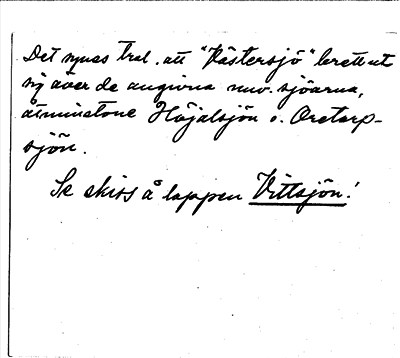 Det synes trol. att "Västersjö" brett ut
sig över de angivna nuv. sjöarna,
åtminstone Höjalsjön o. Oretorp-
sjön.
Se skiss å lappen Vittsjön!